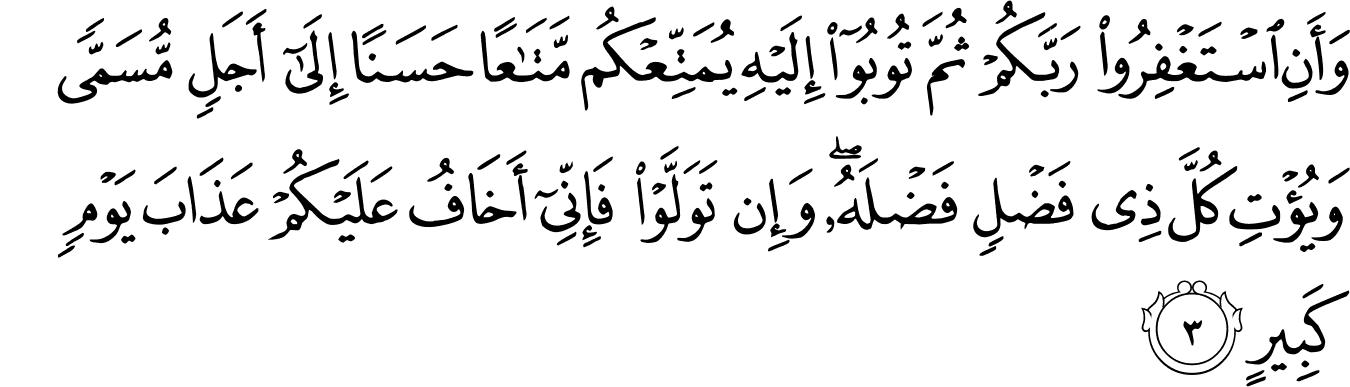 وَأَنِ ٱسْتَغْفِرُوا۟ رَبَّكُمْ ثُمَّ تُوبُوٓا۟ إِلَيْهِ يُمَتِّعْكُم مَّتَٰعًا حَسَنًا إِلَىٰٓ أَجَلٍ مُّسَمًّى
وَيُؤْتِ كُلَّ ذِى فَضْلٍ فَضْلَهُۥ ۖ وَإِن تَوَلَّوْا۟ فَإِنِّىٓ أَخَافُ عَلَيْكُمْ عَذَابَ يَوْمٍ
كَبِيرٍ ٣